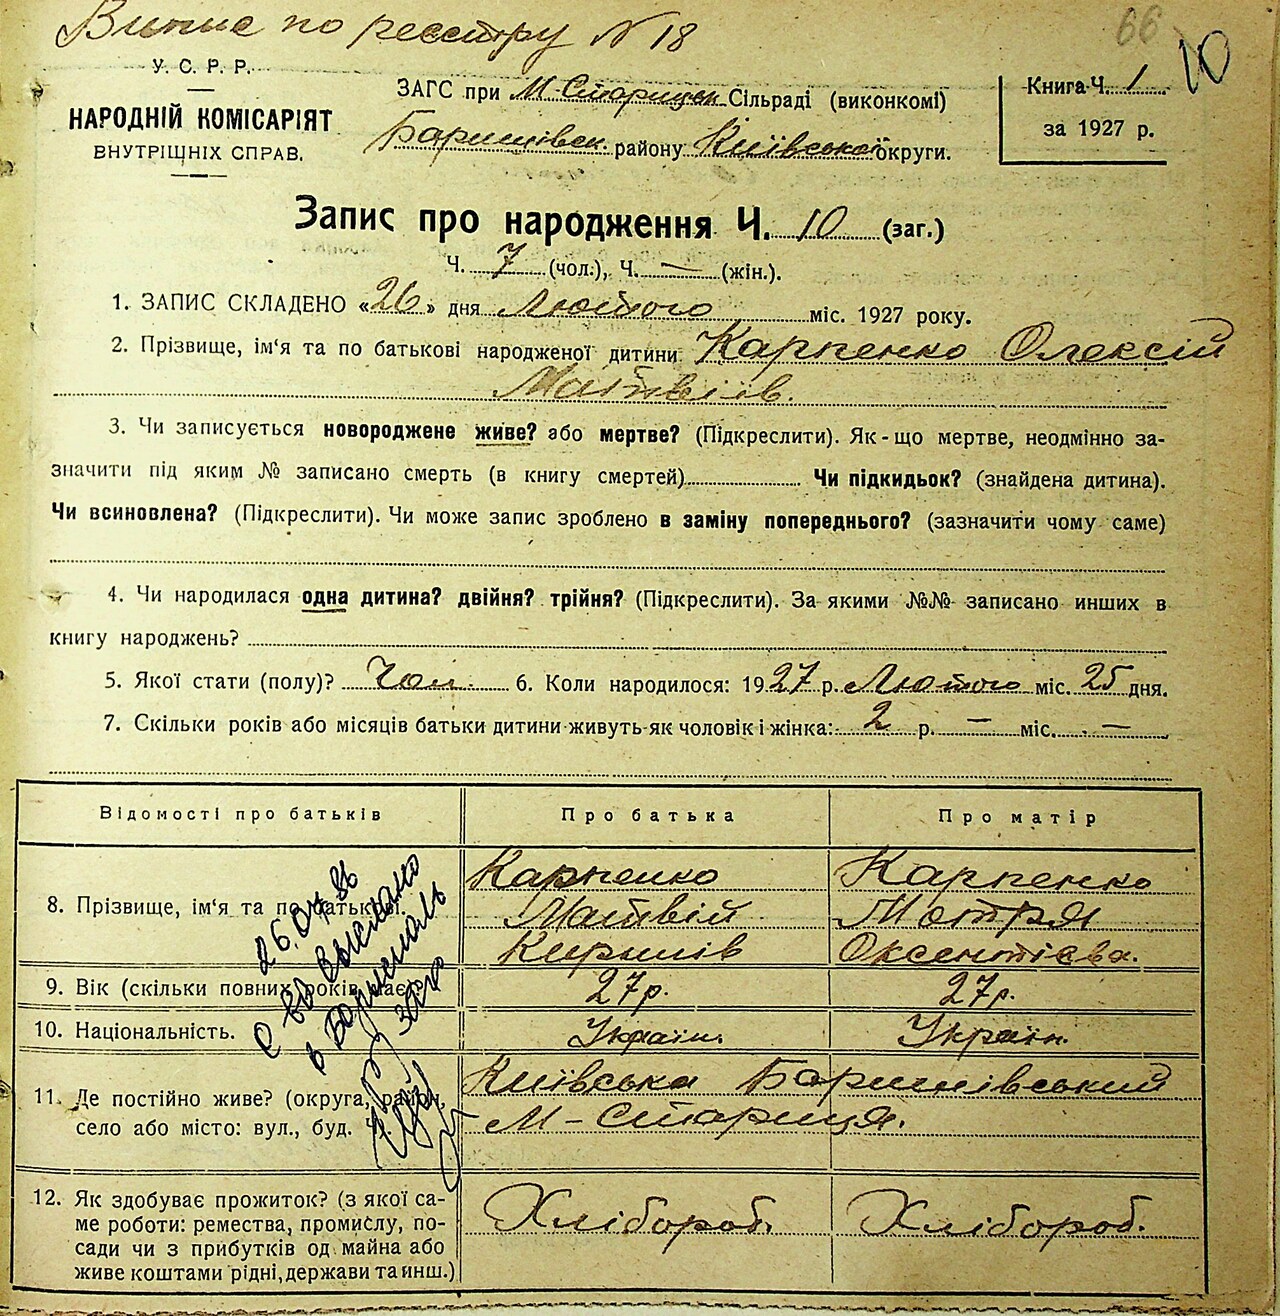 Випис по реєстру N 18
66
10
У. С. Р. Р.
НАРОДНІЙ КОМІСАРІЯТ
ВНУТРІШНІХ СПРАВ.
ЗАГС при М-Старицьк Сільраді (виконкомі)
Баришівськ. району Київської округи.
Книга Ч. 1
за 1927 р.
Запис про народження Ч. 10 (заг.)
Ч. 7 (чол.), Ч. — (жін.).
1. ЗАПИС СКЛАДЕНО «26» дня Лютого міс. 1927 року.
2. Прізвище, ім'я та по батькові народженої дитини Карпенко Олексій
Матвіїв.
3. Чи записується новороджене живе? або мертве? (Підкреслити). Як-що мертве, неодмінно за-
значити під яким № записано смерть (в книгу смертей) Чи підкидьок? (знайдена дитина).
Чи всиновлена? (Підкреслити). Чи може запис зроблено в заміну попереднього? (зазначити чому саме)
4. Чи народилася одна дитина? двійня? трійня? (Підкреслити). За якими №№ записано инших в
книгу народжень?
5. Якої стати (полу)? Чол. 6. Коли народилося: 1927 р. Лютого міс. 25 дня.
7. Скільки років або місяців батьки дитини живуть як чоловік і жінка: 2 р. — міс. —
Відомості про батьків Про батька Про матір
8. Прізвище, ім'я та по батькові. Карпенко Матвій Кирилів Карпенко Мотря Оксентієва.
9. Вік (скільки повних років має) 27р. 27р.
10. Національність. Україн. Україн.
11. Де постійно живе? (округа, район, Київська Баришівський
село або місто: вул., буд. Ч. М-Стариця.
12. Як здобуває прожиток? (з якої са-
ме роботи: ремества, промислу, по-
сади чи з прибутків од майна або
живе коштами рідні, держави та инш.) Хлібороб. Хлібороб.
26.04.86
с-во выслано
в Борисполь